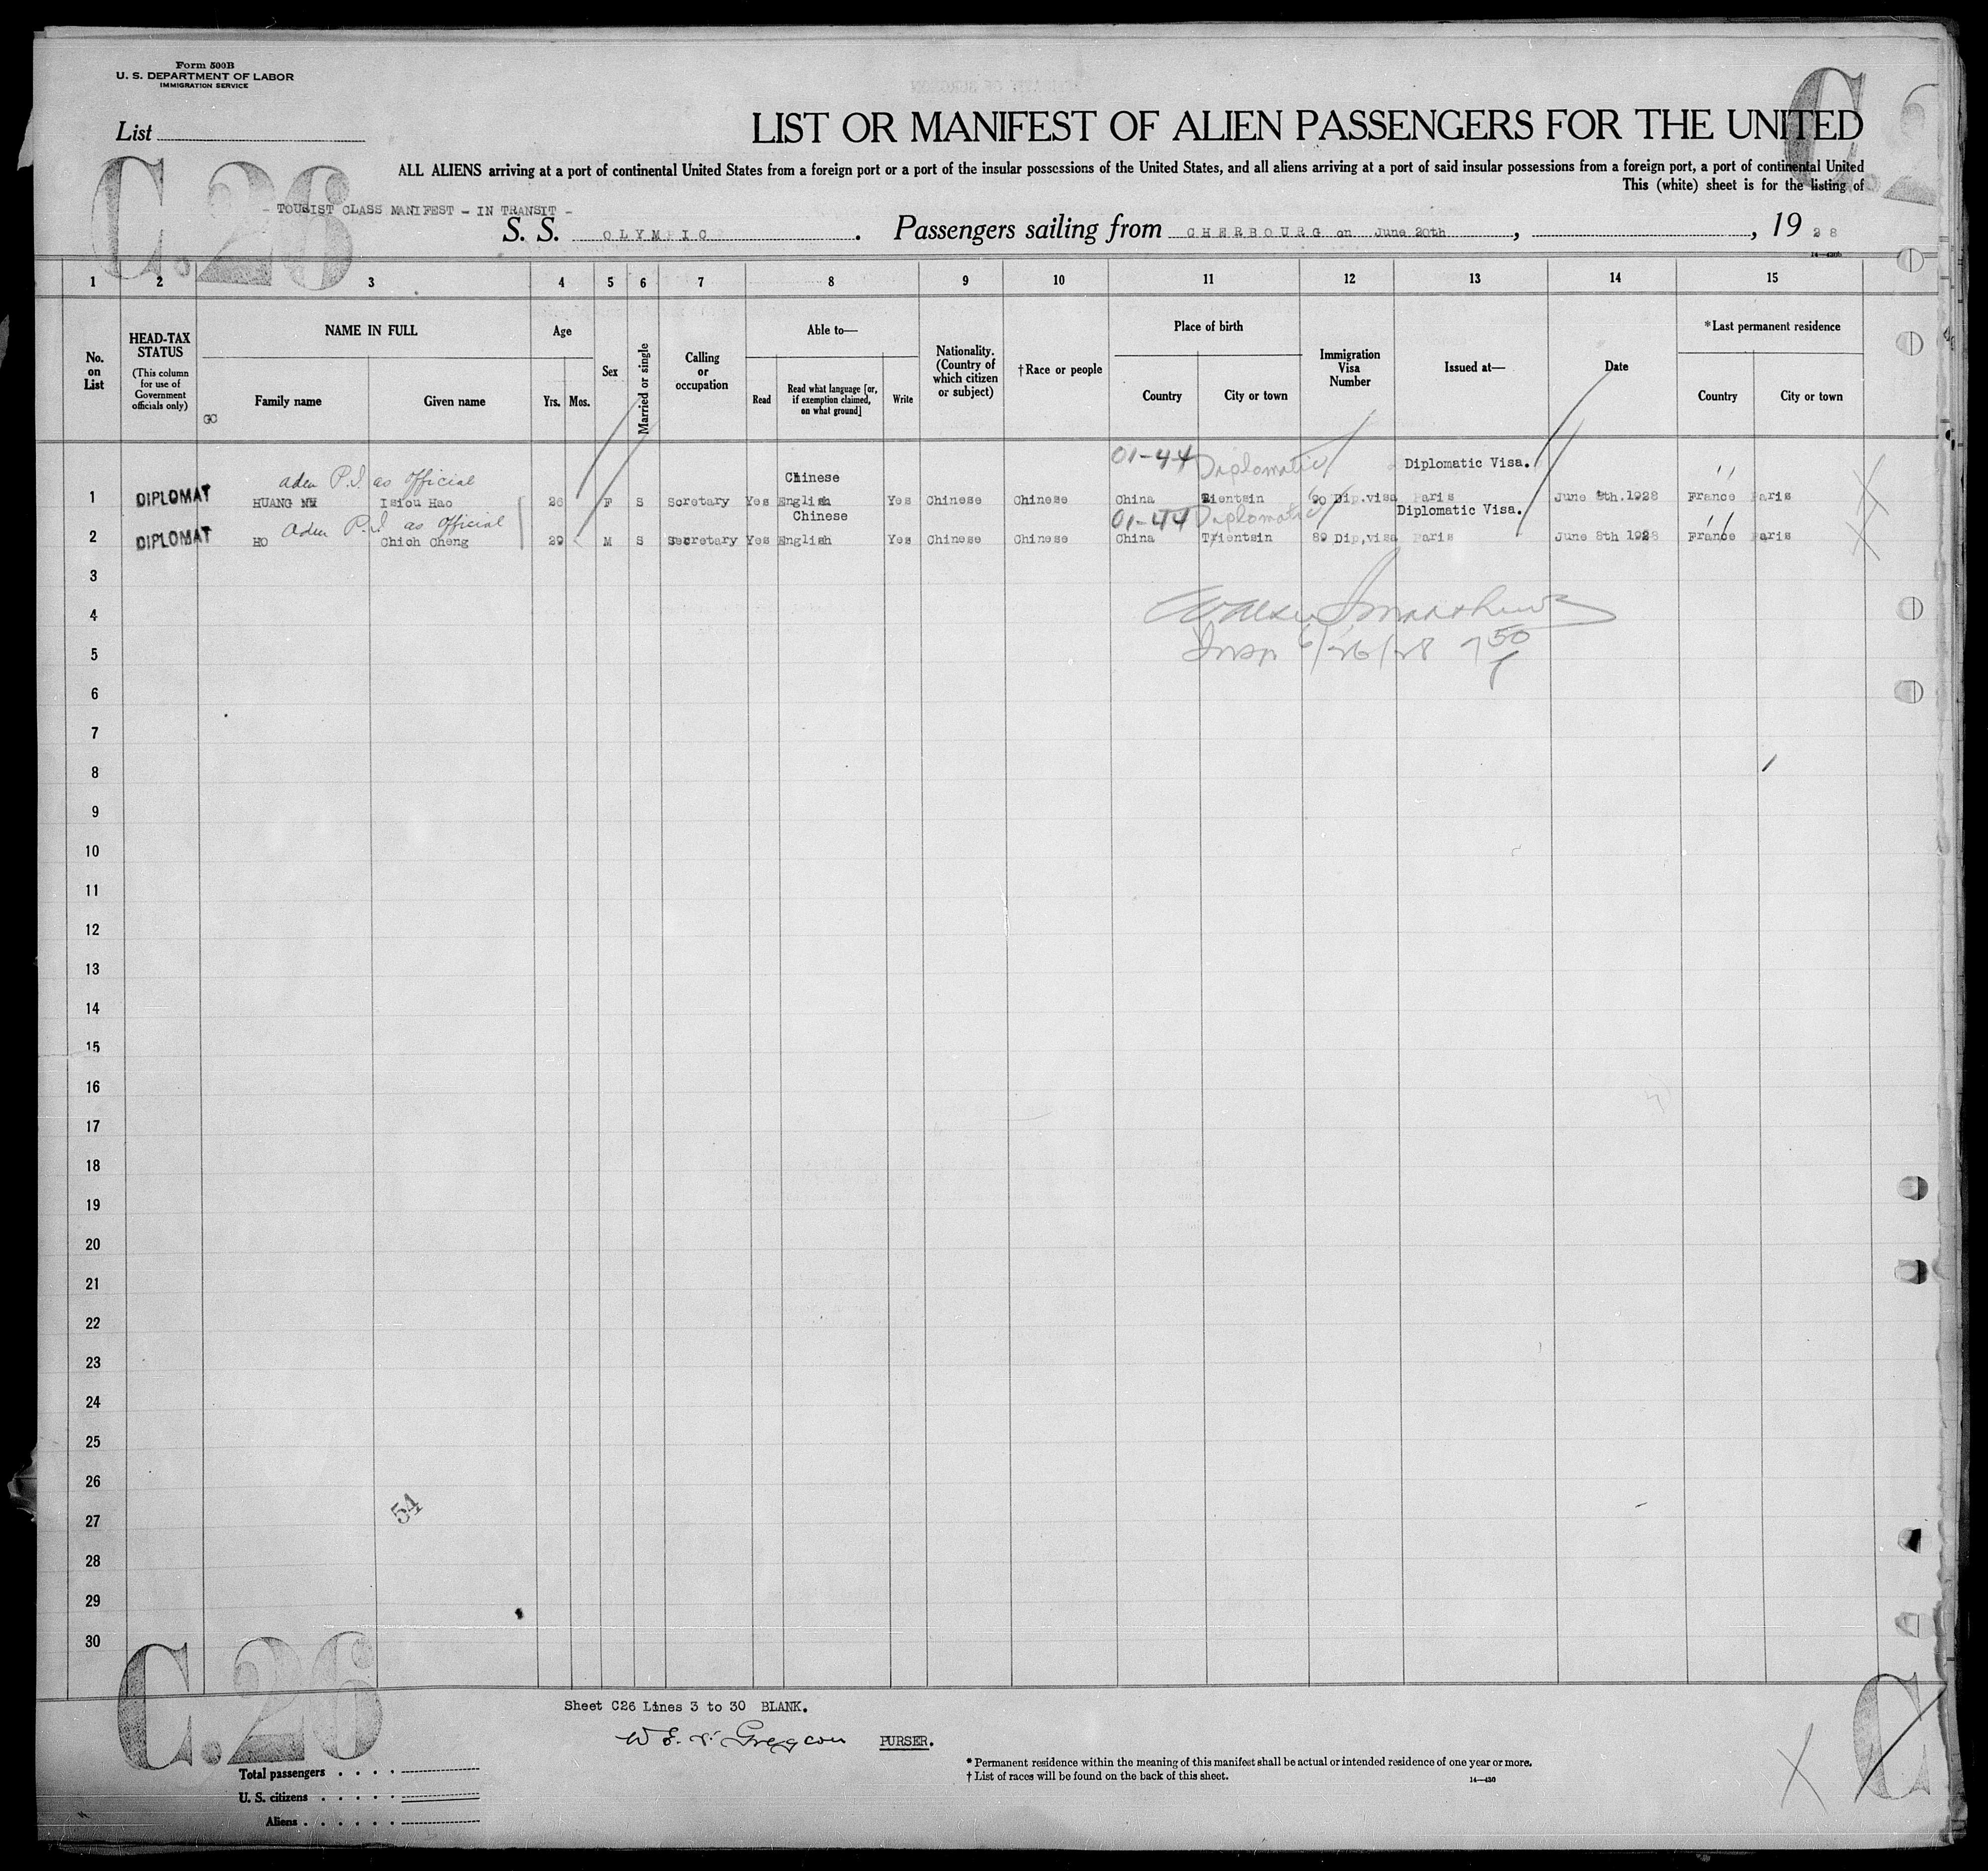 Form 500B
U. S. DEPARTMENT OF LABOR
IMMIGRATION SERVICE
List
C.26
C.2
LIST OR MANIFEST OF ALIEN PASSENGERS FOR THE UNITED
ALL ALIENS arriving at a port of continental United States from a foreign port or a port of the insular possessions of the United States, and all aliens arriving at a port of said insular possessions from a foreign port, a port of continental United
This (white) sheet is for the listing of
- TOURIST CLASS MANIFEST - IN TRANSIT -
S. S. OLYMPIC. Passengers sailing from CHERBOURG on June 20th, , 1928
14-430b
1 2 3 4 5 6 7 8 9 10 11 12 13 14 15
No. on List
HEAD-TAX STATUS (This column for use of Government officials only)
NAME IN FULL Family name Given name
GC
Age Yrs. Mos.
Sex
Married or single
Calling or occupation
Able to— Read Read what language [or, if exemption claimed, on what ground] Write
Nationality. (Country of which citizen or subject)
†Race or people
Place of birth Country City or town
Immigration Visa Number
Issued at—
Date
*Last permanent residence Country City or town
01-44 Diplomatic Diplomatic Visa.
aden P.I. as official Chinese
1 DIPLOMAT HUANG Isiou Hao 26 F S Scretary Yes English Yes Chinese Chinese China Tientsin 90 Dip.visa Paris June 8th.1928 France Paris
Chinese 01-44 Diplomatic Diplomatic Visa.
aden P.I. as official
2 DIPLOMAT HO Chich Cheng 29 M S Secretary Yes English Yes Chinese Chinese China Tientsin 89 Dip,visa Paris June 8th 1928 France Paris
3
4
5
Insp 6/26/28 7 50
6
7
8
9
10
11
12
13
14
15
16
17
18
19
20
21
22
23
24
25
26
54
27
28
29
30
C.26
C
Sheet C26 Lines 3 to 30 BLANK.
PURSER.
*Permanent residence within the meaning of this manifest shall be actual or intended residence of one year or more.
†List of races will be found on the back of this sheet.
14-430
Total passengers
U. S. citizens
Aliens